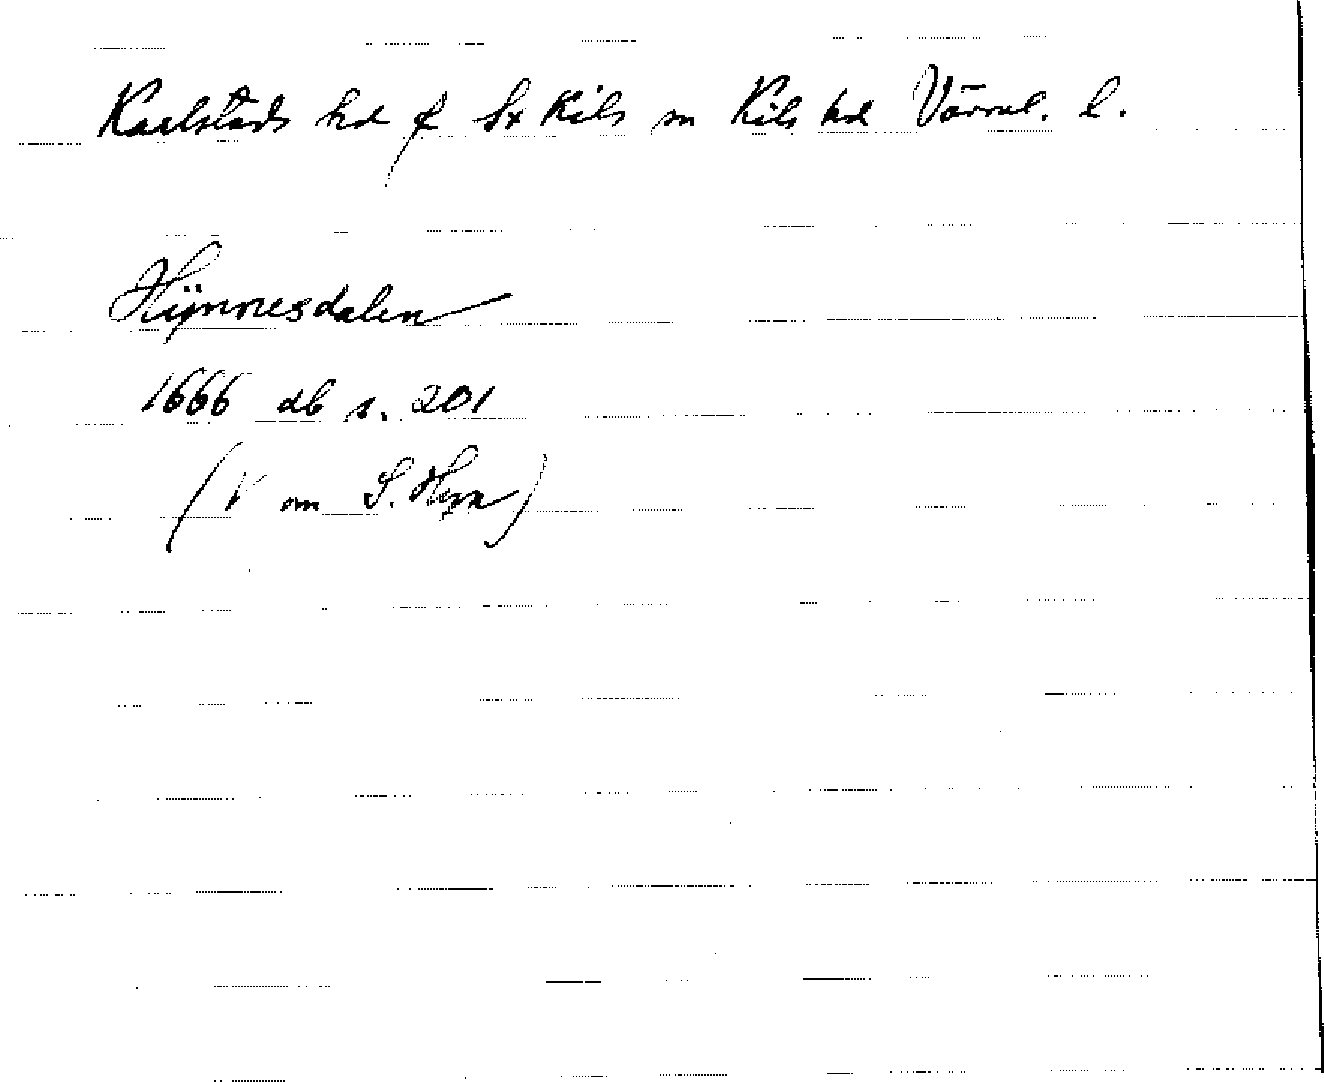 Karlstads hd f St Kils sn Kils hd Värml. l.
Hÿnnesdalen
1666 db s. 201
(V om S. Hyn)